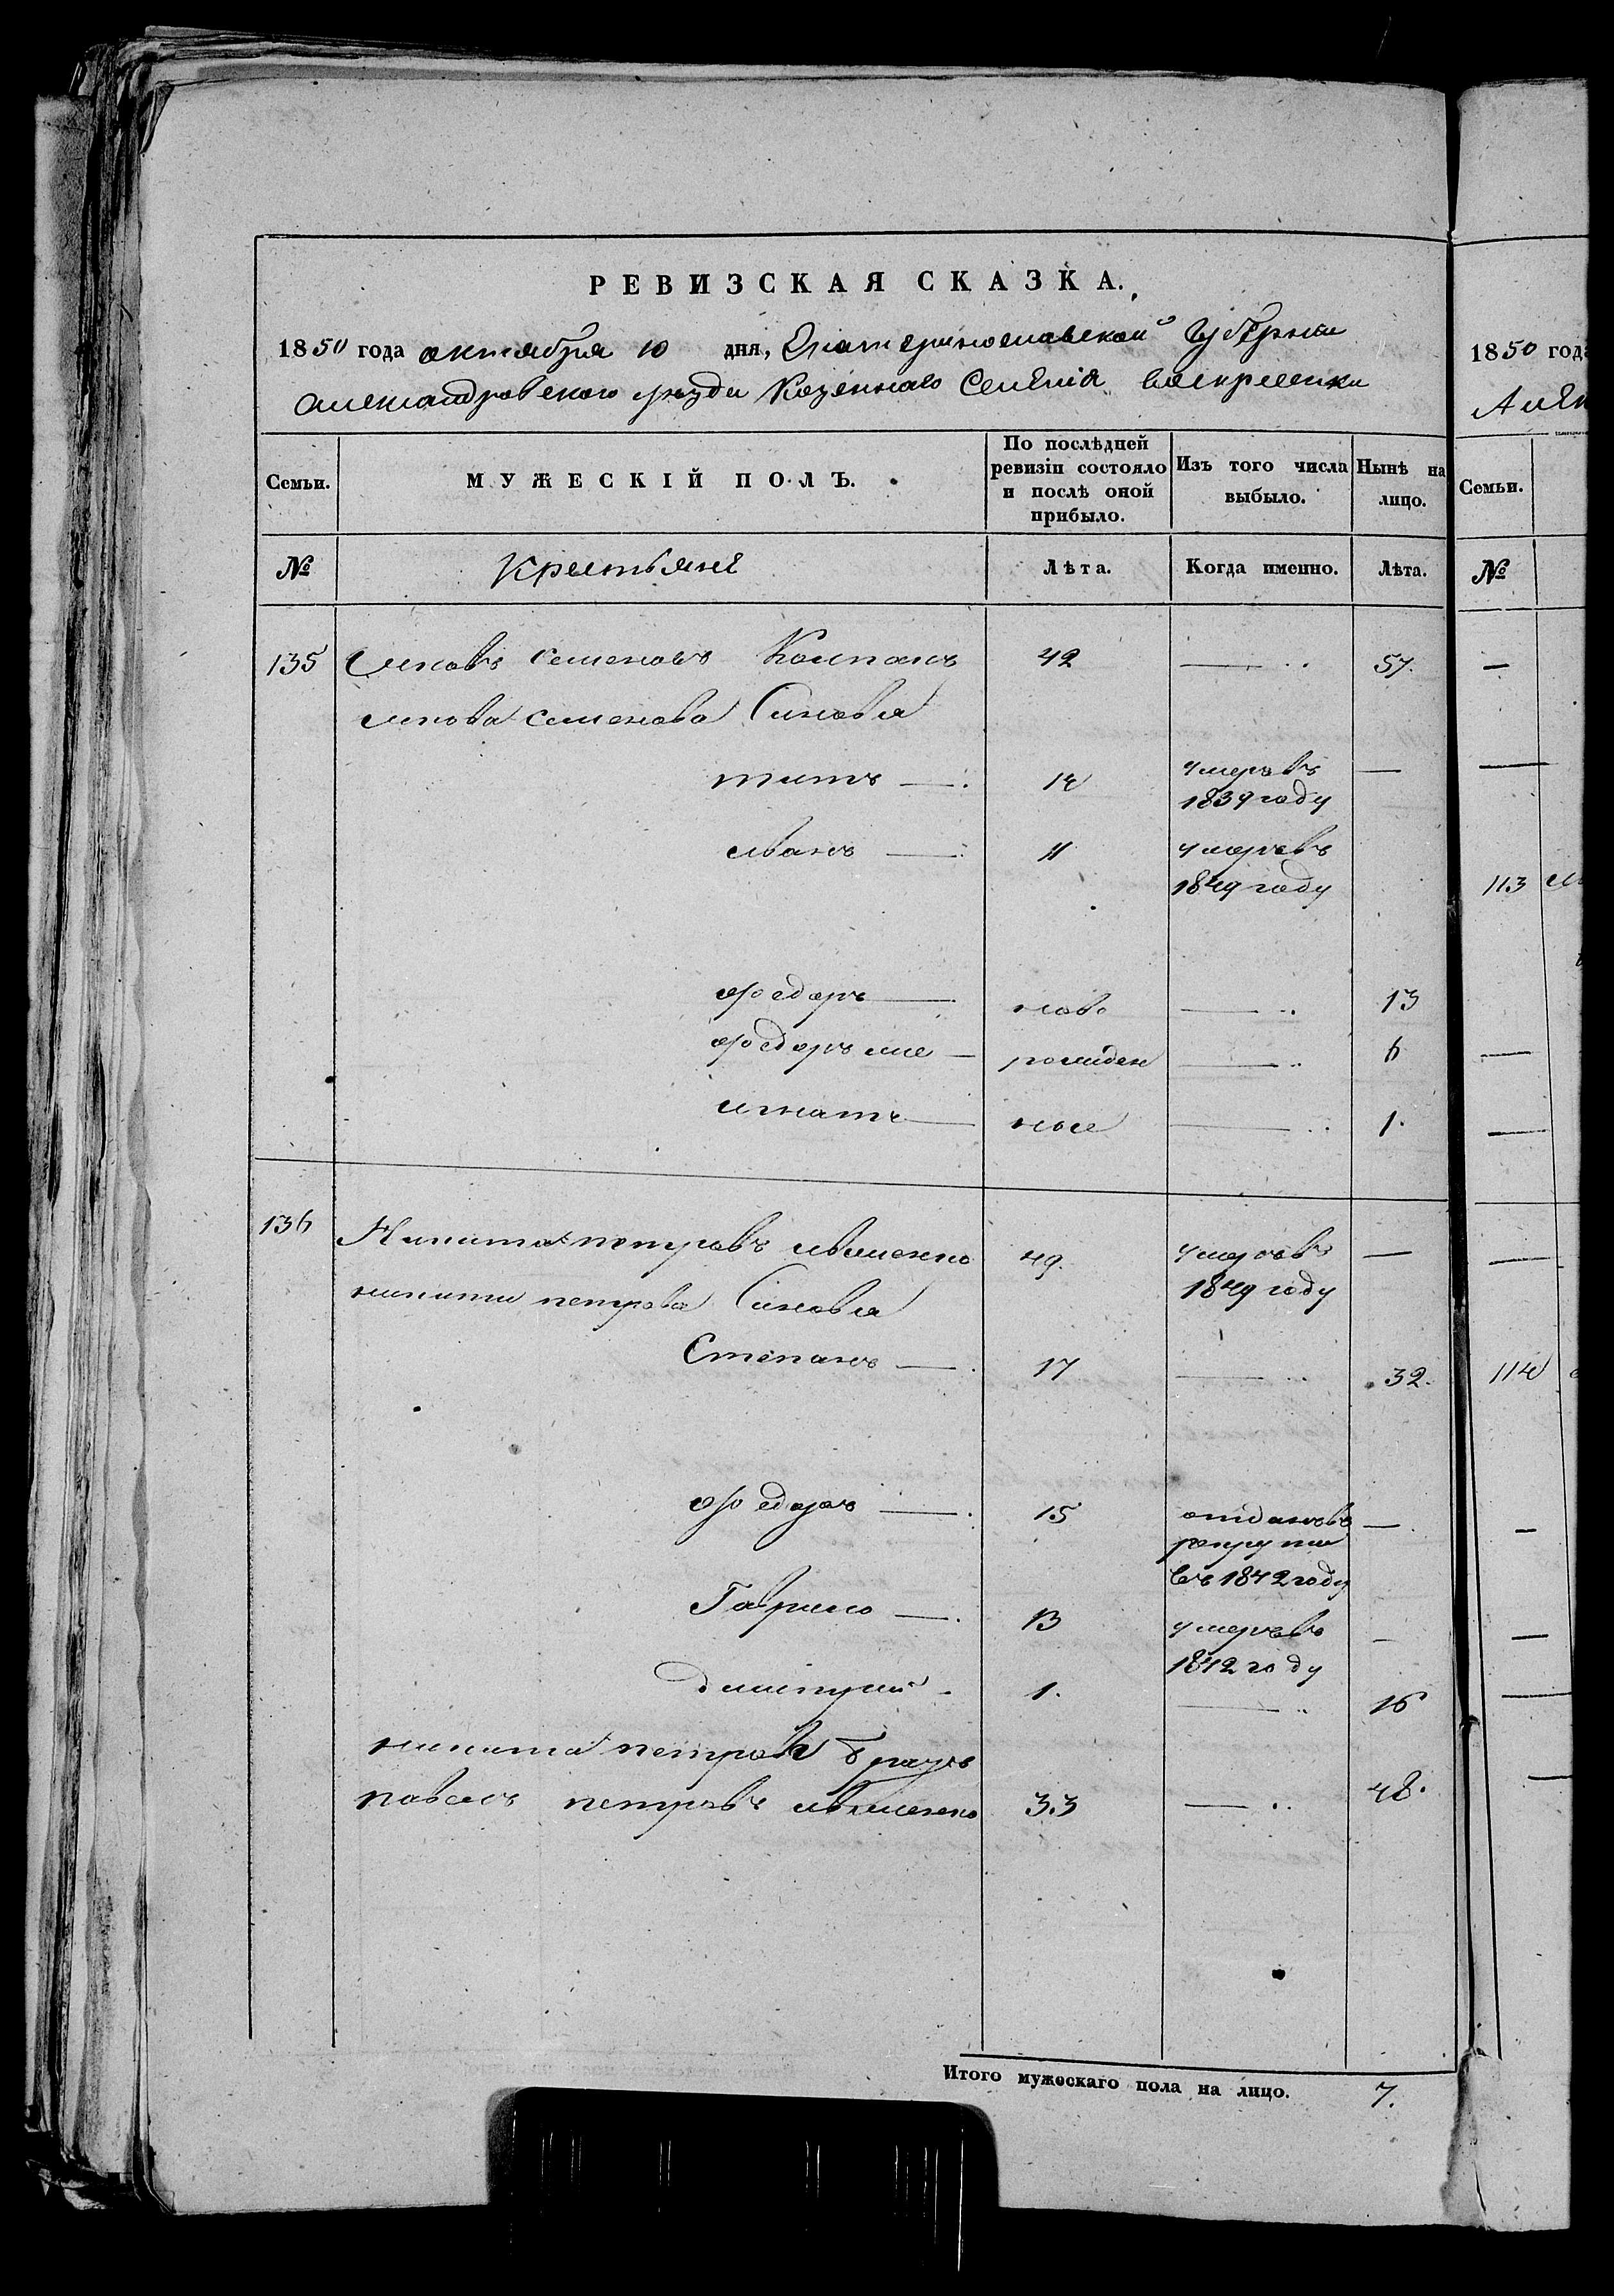 РЕВИЗСКАЯ СКАЗКА.
1850 года октября 10 дня, Екатеринославской Губернии
Александровского уезда Казенного Селения Воскресенки
Семьи. МУЖЕСКІЙ ПОЛЪ. По послѣдней ревизіи состояло и послѣ оной прибыло. Изъ того числа выбыло. Нынѣ на лицо.
№ Крестьяне Лѣта. Когда именно. Лѣта.
135 Яковъ Семеновъ 42 — 57.
Якова Семенова Синовья
титъ — 14 умеръ въ —
1839 году
иванъ — 11 умеръ въ
1849 году
федоръ — ново — 13
федоръ ме — рожден — 6
игнатъ — ные — 1.
136 Никита петровъ ивженко 49. умеръ въ —
никиты петрова Синовья 1849 году
Степанъ — 17 — 32.
федоръ — 15 отдан въ —
рекруты
въ 1842 году
Гаврило — 13 умеръ въ —
1842 году
Дмитрий 1. — 16
никита петров братъ
павелъ петровъ ивженко 33 — 48.
Итого мужескаго пола на лицо. 7.
1850 года
Семьи.
№
113
114